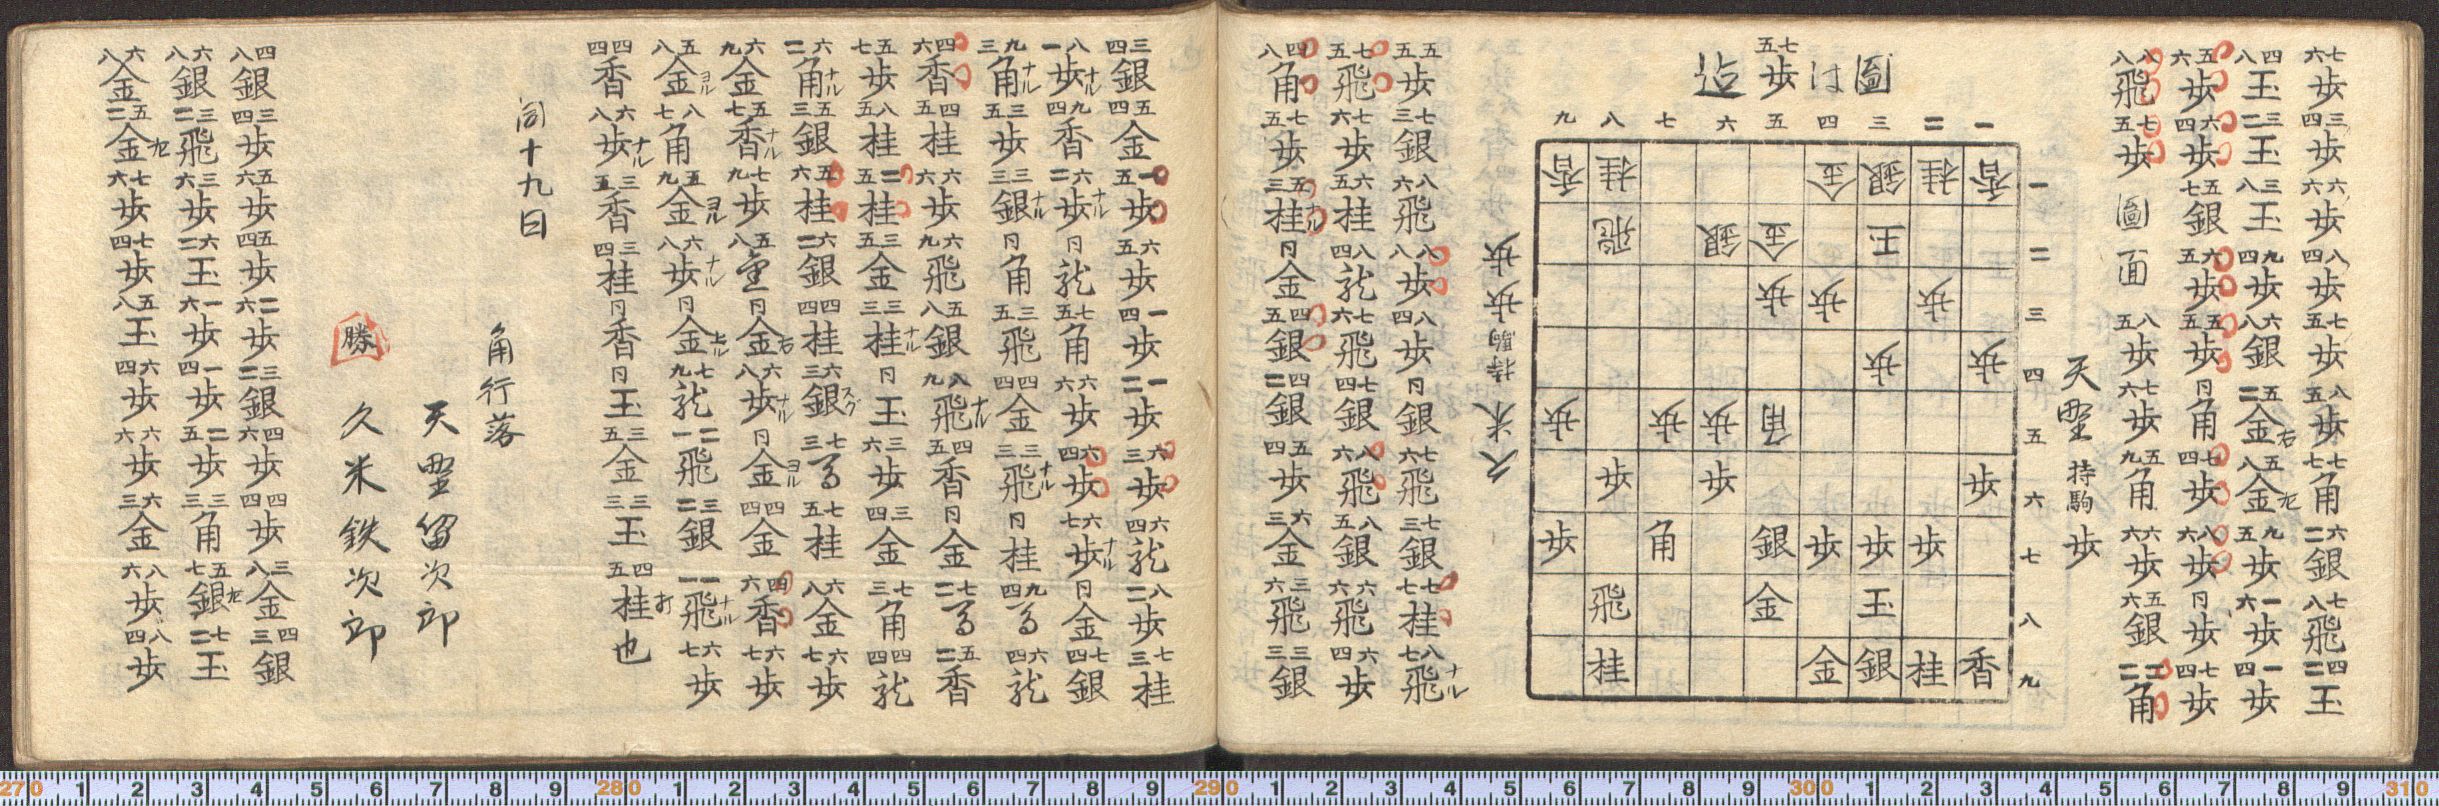 七六歩 三四歩 六六歩 八四歩 七五歩 八五歩 七七角 六二銀 七八飛 四二玉
四八玉 三二玉 三八玉 九四歩 六八銀 五二金右 五八金左 九五歩 一六歩 一四歩
五六歩 六四歩 五七銀 六五歩 五五歩 同角 七四歩 八六歩 同歩 七四歩
八八飛 七五歩 圖面 八五歩 七六歩 五九角 六六歩 五六銀 二二角
天野 持駒 歩
圖は七五歩迠
九八七六五四三二一
香桂金銀桂香 一
飛銀金玉 二
歩歩歩 三
歩歩 四
歩歩歩角 五
歩歩歩 六
歩角銀歩歩歩 七
飛金玉 八
桂金銀桂香 九
久米 持駒 歩歩
五五歩 七三銀 八六飛 八八歩 八四歩 同銀 七六飛 七三銀 七七桂 八七飛ナル
七五飛 七六歩 六五桂 八四龍 七六飛 七四銀 八六飛 八五銀 六六飛 六四歩
四八角 七五歩 五三桂ナル 同金 四五銀 四二銀 五四歩 六三金 三六飛 三三銀
三四銀 五四金 一五歩 六五歩 一四歩 一二歩 六三歩 六四龍 八二歩 七三桂
八一歩ナル 九四香 六二歩ナル 同龍 一五角 六六歩 六四歩 六七歩ナル 同金 七四銀
九三角ナル 三五歩 三三銀ナル 同角 三五飛 四四金 三三飛ナル 同桂 九四馬 六四龍
四六香 四五桂 六六歩 六九飛 五八銀 八九飛ナル 四五香 同金 七二馬 五二香
五七歩 八五桂 二五桂 三五金 三三桂ナル 同玉 三六歩 三四金 七三角 四四龍
六二角ナル 五三銀 五六桂 六二銀 四四桂 六三銀スグ 七三馬 七五桂 六八金 六七歩
六九金 五七香ナル 七九歩 五八 同金右 六八歩ナル 同金ヨル 四四金 四六香 六七歩
五八金ヨル 八七角 五九金ヨル 六八歩ナル 同金上ル 七九龍 二一飛 三二銀 一一飛ナル 六七歩
四四香 六八歩ナル 三五香 三四桂 同香 同玉 三五金 三三玉 四五桂打也
同十九日
角行落
天野留次郎
勝 久米鉄次郎
四八銀 三四歩 五六歩 五四歩 二六歩 三二銀 四六歩 四四歩 三八金 四三銀
六八銀 三二飛 三六歩 六二玉 一六歩 一四歩 二五歩 三三角 五七銀左 七二玉
六八金 五二金左 七六歩 七四歩 五八玉 六四歩 六六歩 六三金 八六歩 八四歩
270 1 2 3 4 5 6 7 8 9 280 1 2 3 4 5 6 7 8 9 290 1 2 3 4 5 6 7 8 9 300 1 2 3 4 5 6 7 8 9 310